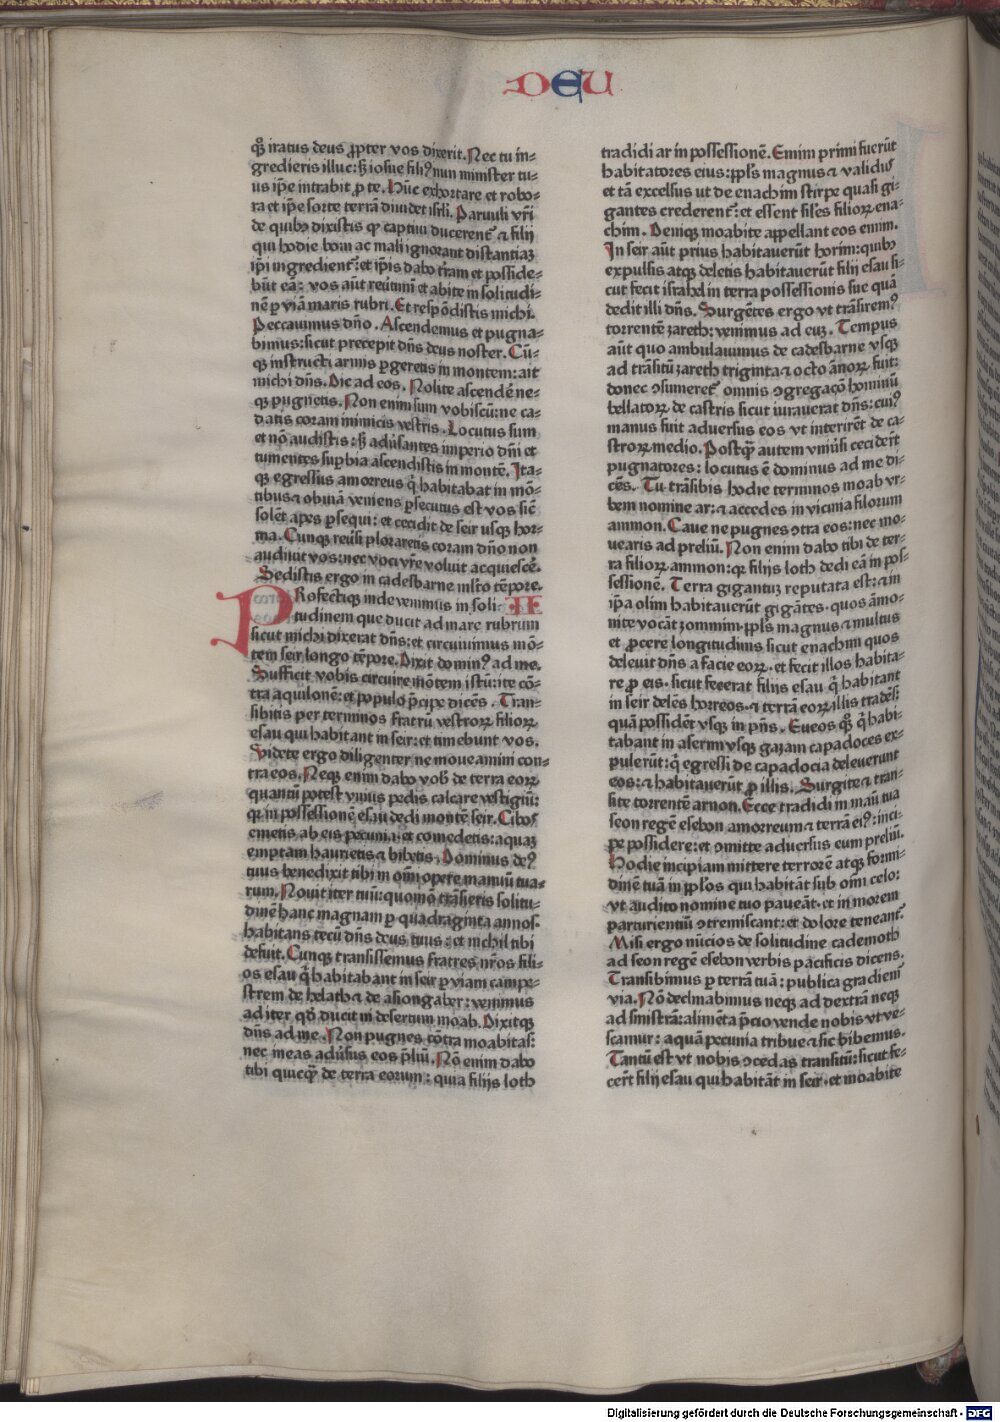 DEU
q̄ꝫ iratus deus ꝓpter vos dixerit. Nec tu in-
gredieris illuc: sꝫ iosue filiꝰ nun minister tu-
us ip̄e intrabit ꝓ te. Hūc exhortare et robo-
ra et ip̄e sorte terrā diuidet isrl̄i. Paruuli vr̄i
de quibꝫ dixistis qꝫ captiui ducerent̄ ⁊ filij
qui hodie boni ac mali ignorant distantiaꝫ
ip̄i ingredient̄: et ip̄is dabo t̄ram et posside-
būt eā: vos aūt reūtim̄i et abite in solitudi-
nē ꝑ viā maris rubri. Et respōdistis michi.
Peccauimus dn̄o. Ascendemus et pugna-
bimus: sicut precepit dn̄s deus noster. Cū-
qꝫ instructi armis ꝑgeretis in montem: ait
michi dn̄s. Dic ad eos. Nolite ascendē ne-
qꝫ pugnetis. Non enim sum vobiscū: ne ca-
datis coram inimicis vestris. Locutus sum
et nō audistis: sꝫ adūsantes imperio dn̄i et
tumentes suꝑbia ascendistis in montē. Ita-
qꝫ egressus amorreus q̄ habitabat in mō-
tibus ⁊ obuiā veniens ꝑsecutus est vos sic̄
solēt apes ꝑsequi: et cecidit de seir usqꝫ hor-
ma. Cunqꝫ reūsi ploraretis coram dn̄o non
audiuit vos: nec voci vr̄e voluit acquiescē.
Sedistis ergo in cadesbarne mlt̄o tēpore.
PRofectiqꝫ inde venimus in soli- II
tudinem que ducit ad mare rubrum
sicut michi dixerat dn̄s: et circuiuimus mō-
tem seir longo tēpore. Dixit dominꝰ ad me.
Sufficit vobis circuire mōtem istū: ite cō-
tra aquilonē: et populo p̄cipe dicēs. Tran-
sibitis per terminos fratrū vestroꝝ filioꝝ
esau qui habitant in seir: et timebunt vos.
Videte ergo diligenter ne moueamini con-
tra eos. Neqꝫ enim dabo vob̄ de terra eoꝝ
quantū potest vnius pedis calcare vestigiū:
qꝛ in possessionē esau dedi montē seir. Cibos
emetis ab eis pecunia: et comedetis: aquaꝫ
emptam haurietis ⁊ bibetis. Dominus deꝰ
tuus benedixit tibi in om̄i opere manuū tua-
rum. Nouit iter tuū: quomō trāsieris solitu-
dinē hanc magnam ꝑ quadraginta annos.
habitans tecū dn̄s deus tuus: et nichil tibi
defuit. Cunqꝫ transissemus fratres nr̄os fili-
os esau q̄ habitabant in seir ꝑ viam campe-
strem de helath ⁊ de asiongaber: venimus
ad iter qd̄ ducit in desertum moab. Dixitqꝫ
dn̄s ad me. Non pugnes cōtra moabitas:
nec ineas adūsus eos p̄liū. Nō enim dabo
tibi quicqꝫ de terra eorum: quia filijs loth
tradidi ar in possessionē. Emim primi fuerūt
habitatores eius: ppl̄s magnus ⁊ validus
et tā excelsus ut de enachim stirpe quasi gi-
gantes crederent̄: et essent sil̄es filioꝝ ena-
chim. Deniqꝫ moabite appellant eos emim.
In seir aūt prius habitauerūt horim: quibꝫ
expulsis atqꝫ deletis habitauerūt filij esau si-
cut fecit israhel in terra possessionis sue quā
dedit illi dn̄s. Surgētes ergo vt trāsiremꝰ
torrentē zareth: venimus ad eūꝫ. Tempus
aūt quo ambulauimus de cadesbarne vsqꝫ
ad trāsitū zareth triginta ⁊ octo ānoꝝ fuit:
donec ↄsumeret̄ omnis ↄgregacō hominū
bellatoꝝ de castris sicut iurauerat dn̄s: cuiꝰ
manus fuit aduersus eos vt interirēt de ca-
stroꝝ medio. Postqꝫ autem vniūsi cecider̄t
pugnatores: locutus ē dominus ad me di-
cēs. Tu trāsibis hodie terminos moab vr-
bem nomine ar: ⁊ accedes in vicinia filiorum
ammon. Caue ne pugnes ↄtra eos: nec mo-
uearis ad preliū. Non enim dabo tibi de ter-
ra filioꝝ ammon: qꝛ filijs loth dedi eā in pos-
sessionē. Terra gigantuꝫ reputata est: ⁊ in
ip̄a olim habitauerūt gigātes. quos āmo-
nite vocāt zommim. ppl̄s magnus ⁊ multus
et ꝓcere longitudinis sicut enachim quos
deleuit dn̄s a facie eoꝝ. et fecit illos habita-
re ꝓ eis. sicut fecerat filijs esau q̄ habitant
in seir delēs horreos. ⁊ terrā eoꝝ illis tradēs:
quā possidēt vsqꝫ in p̄ns. Eueos qꝫ q̄ habi-
tabant in aserim vsqꝫ gazam capadoces ex-
pulerūt: q̄ egressi de capadocia deleuerunt
eos: ⁊ habitauerūt ꝓ illis. Surgite ⁊ tran-
site torrentē arnon. Ecce tradidi in manū tua
seon regē esebon amorreum ⁊ terrā eiꝰ: inci-
pe possidere: et ↄmitte aduersus eum preliū.
Hodie incipiam mittere terrorē atqꝫ formi-
dinē tuā in ppl̄os qui habitāt sub om̄i celo:
vt audito nomine tuo paueāt. et in morem
parturientiū ↄtremiscant: et dolore teneant̄.
Misi ergo nūcios de solitudine cademoth
ad seon regē esebon verbis pacificis dicens.
Transibimus ꝑ terrā tuā: publica gradiem̄
via. Nō declinabimus neqꝫ ad dextrā neqꝫ
ad sinistrā: alimēta p̄cio vende nobis vt ve-
scamur: aquā pecunia tribue ⁊ sic bibemus.
Tantū est vt nobis ↄcedas transitū: sicut fe-
cer̄t filij esau qui habitāt in seir. et moabite
Digitalisierung gefördert durch die Deutsche Forschungsgemeinschaft - DFG